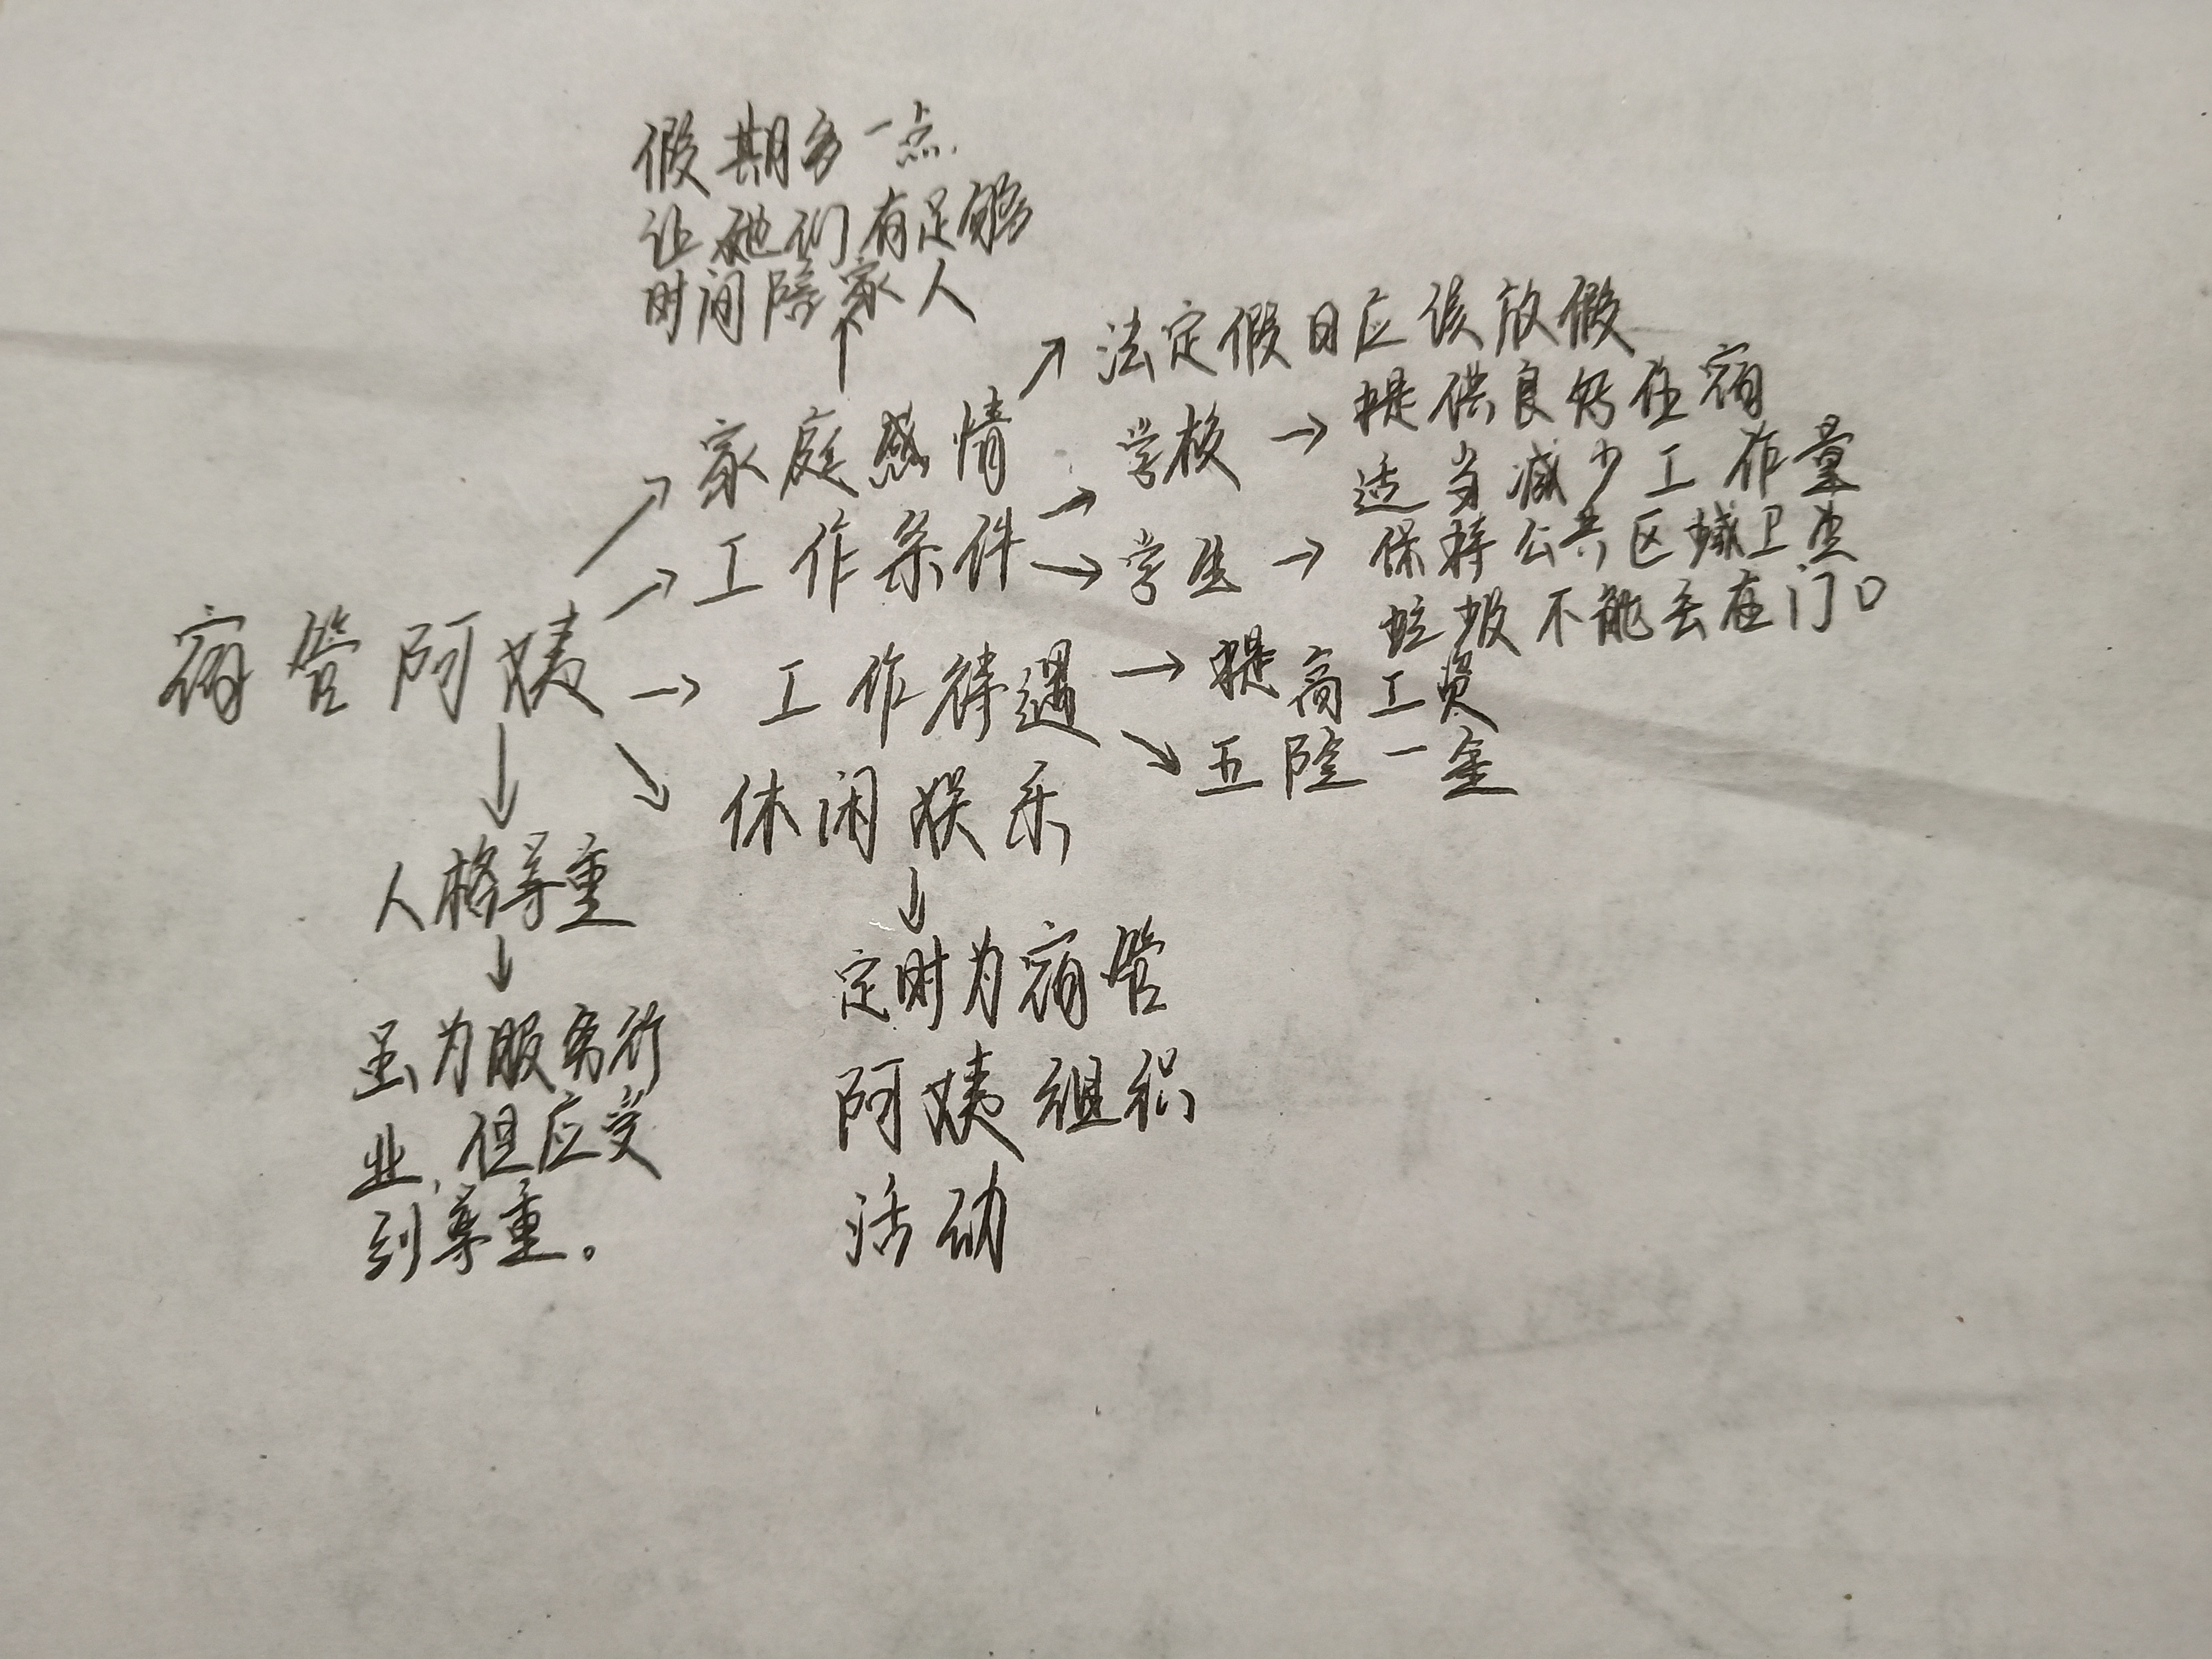 假期多一点.
让她们有足够
时间陪家人
↑
↗ 法定假日应该放假
↗ 家庭感情
学校 → 提供良好住宿
适当减少工作量
↗ 工作条件 ↗
→ 学生 → 保持公共区域卫生
垃圾不能丢在门口
宿管阿姨 → 工作待遇 → 提高工资
↘ 五险一金
↘ 休闲娱乐
↓
定时为宿管
阿姨组织
活动
↓
人格尊重
↓
虽为服务行
业,但应受
到尊重。